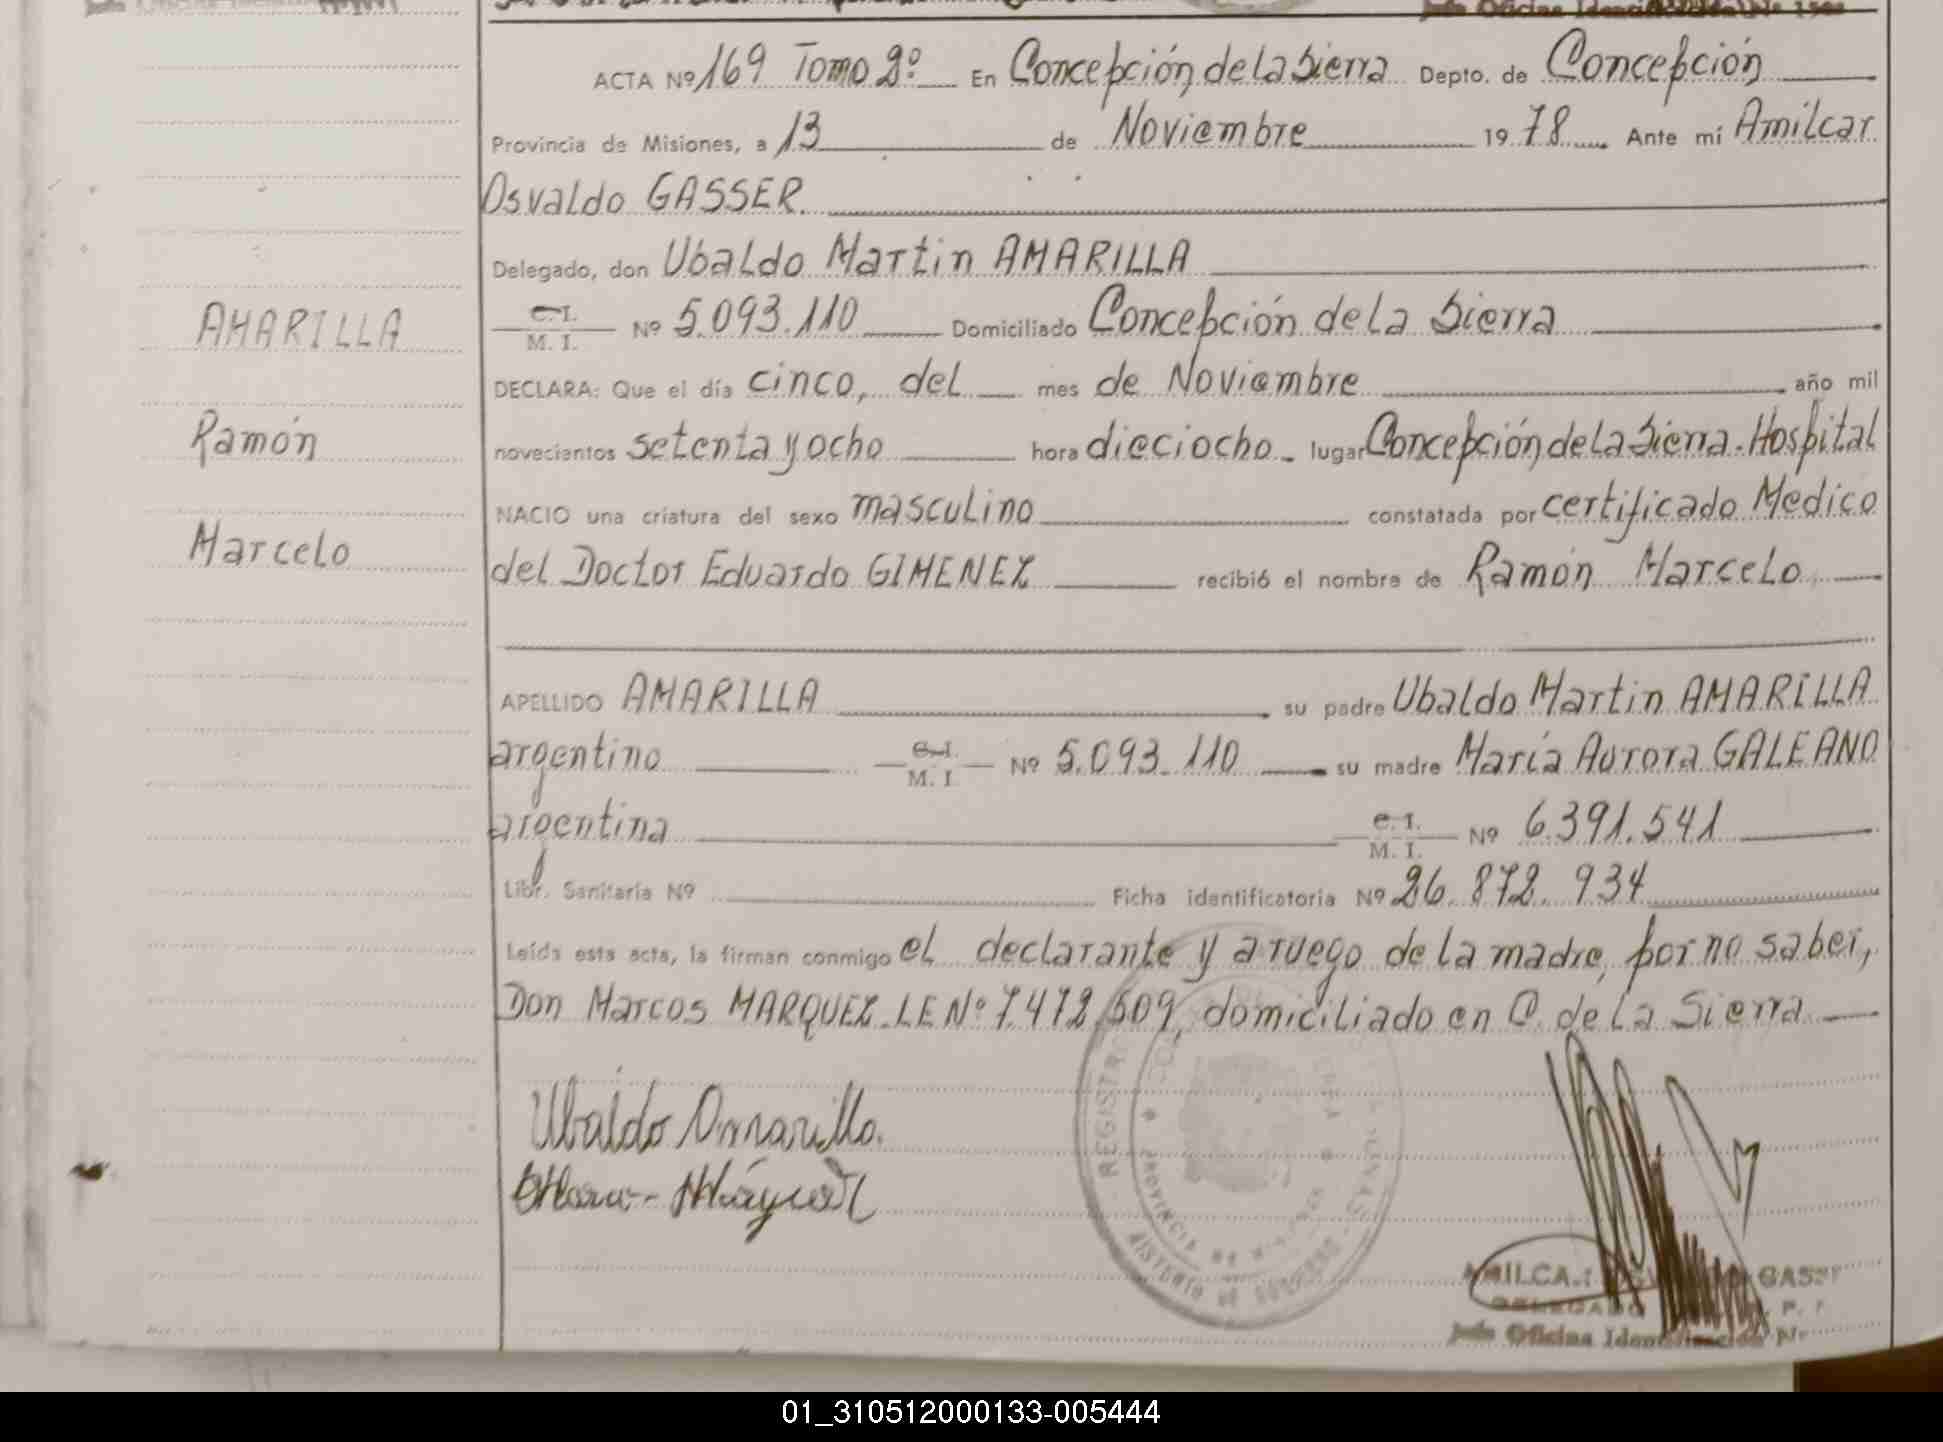 ACTA Nº 169 Tomo 2º En Concepción de la Sierra Depto. de Concepción
Provincia de Misiones, a 13 de Noviembre 1978 Ante mí Amilcar
Osvaldo GASSER.
Delegado, don Ubaldo Martin AMARILLA
C.I. M. I. Nº 5.093.110 Domiciliado Concepción de la Sierra
AMARILLA
DECLARA: Que el día cinco, del mes de Noviembre año mil
Ramón
novecientos setenta y ocho hora dieciocho lugar Concepción de la Sierra-Hospital
NACIO una criatura del sexo masculino constatada por certificado Medico
Marcelo
del Doctor Eduardo GIMENEZ recibió el nombre de Ramón Marcelo
APELLIDO AMARILLA su padre Ubaldo Martin AMARILLA
argentino C.I. M. I. Nº 5.093.110 su madre María Aurora GALEANO
argentina C.I. M. I. Nº 6.391.541
Libr. Sanitaria Nº Ficha identificatoria Nº 26.872.934
Leída esta acta, la firman conmigo el declarante y a ruego de la madre, por no saber,
Don Marcos MARQUEZ LE Nº 7.472,509, domiciliado en C. de la Sierra
Ubaldo Amarilla.
REGISTRO
PROVINCIA DE MISIONES
MINISTERIO DE GOBIERNO
GASSER
DELEGADO
Jefe Oficina Identificación Nº
01_310512000133-005444